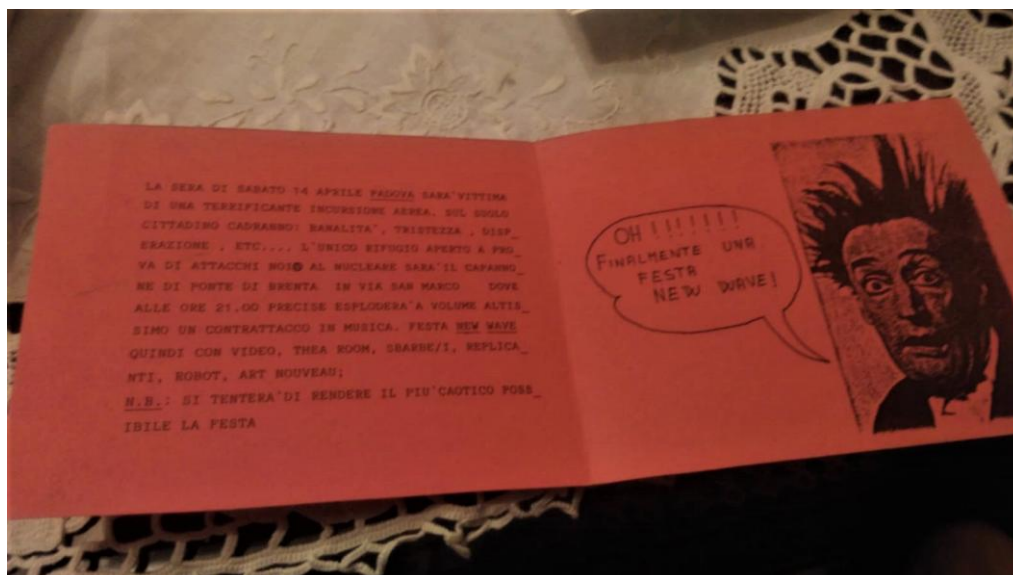 LA SERA DI SABATO 14 APRILE PADOVA SARA'VITTIMA
DI UNA TERRIFICANTE INCURSIONE AEREA. SUL SUOLO
CITTADINO CADRANNO: BANALITA', TRISTEZZA , DISP_
ERAZIONE , ETC..., L'UNICO RIFUGIO APERTO A PRO_
VA DI ATTACCHI AL NUCLEARE SARA'IL CAPANNO_
NE DI PONTE DI BRENTA IN VIA SAN MARCO DOVE
ALLE ORE 21.00 PRECISE ESPLODERA'A VOLUME ALTIS_
SIMO UN CONTRATTACCO IN MUSICA. FESTA NEW WAVE
QUINDI CON VIDEO, THEA ROOM, SBARBE/I, REPLICA_
NTI, ROBOT, ART NOUVEAU;
N.B.: SI TENTERA'DI RENDERE IL PIU'CAOTICO POSS_
IBILE LA FESTA
OH !!!!!!!
FINALMENTE UNA
FESTA
NEW WAVE!